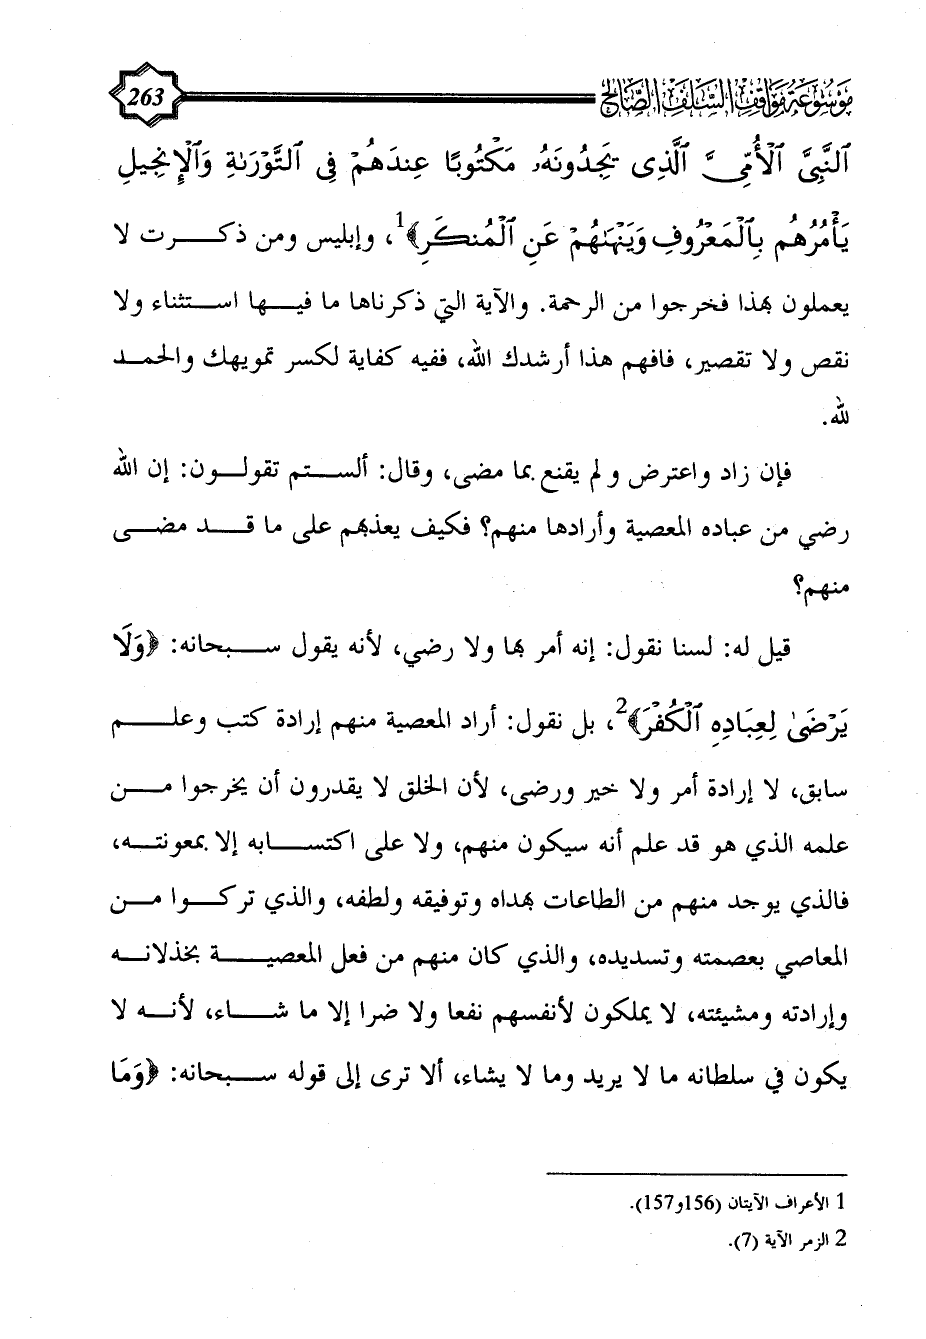 موسوعة مواقف السلف الصالح 263
ٱلنَّبِىَّ ٱلْأُمِّىَّ ٱلَّذِى يَجِدُونَهُۥ مَكْتُوبًا عِندَهُمْ فِى ٱلتَّوْرَىٰةِ وَٱلْإِنجِيلِ
يَأْمُرُهُم بِٱلْمَعْرُوفِ وَيَنْهَىٰهُمْ عَنِ ٱلْمُنكَرِ﴾1، وإبليس ومن ذكرت لا
يعملون بهذا فخرجوا من الرحمة. والآية التي ذكرناها ما فيها استثناء ولا
نقص ولا تقصير، فافهم هذا أرشدك الله، ففيه كفاية لكسر تمويهك والحمد
لله.
فإن زاد واعترض و لم يقنع بما مضى، وقال: ألستم تقولون: إن الله
رضي من عباده المعصية وأرادها منهم؟ فكيف يعذبهم على ما قد مضى
منهم؟
قيل له: لسنا نقول: إنه أمر بها ولا رضي، لأنه يقول سبحانه: ﴿وَلَا
يَرْضَىٰ لِعِبَادِهِ ٱلْكُفْرَ﴾2، بل نقول: أراد المعصية منهم إرادة كتب وعلم
سابق، لا إرادة أمر ولا خير ورضى، لأن الخلق لا يقدرون أن يخرجوا من
علمه الذي هو قد علم أنه سيكون منهم، ولا على اكتسابه إلا بمعونته،
فالذي يوجد منهم من الطاعات بهداه وتوفيقه ولطفه، والذي تركوا من
المعاصي بعصمته وتسديده، والذي كان منهم من فعل المعصية بخذلانه
وإرادته ومشيئته، لا يملكون لأنفسهم نفعا ولا ضرا إلا ما شاء، لأنه لا
يكون في سلطانه ما لا يريد وما لا يشاء، ألا ترى إلى قوله سبحانه: ﴿وَمَا
1 الأعراف الآيتان (156و157).
2 الزمر الآية (7).